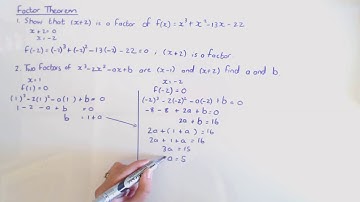 Factor Theorem
1. Show that (x+2) is a factor of f(x) = x³ + x² - 13x - 22
x + 2 = 0
x = -2
f(-2) = (-2)³ + (-2)² - 13(-2) - 22 = 0 , (x+2) is a factor
2. Two factors of x³ - 2x² - ax + b are (x-1) and (x+2) find a and b.
x = 1
f(1) = 0
(1)³ - 2(1)² - a(1) + b = 0
1 - 2 - a + b = 0
b = 1 + a
x = -2
f(-2) = 0
(-2)³ - 2(-2)² - a(-2) + b = 0
-8 - 8 + 2a + b = 0
2a + b = 16
2a + (1 + a) = 16
2a + 1 + a = 16
3a = 15
a = 5